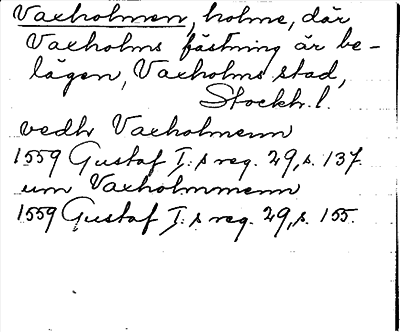 Vaxholmen, holme, där
Vaxholms fästning är be-
lägen, Vaxholms stad,
Stockh. l.
vedh Vaxholmenn
1559 Gustaf I:s reg. 29, s. 137.
um Vaxholmmenn
1559 Gustaf I:s reg. 29, s. 155.